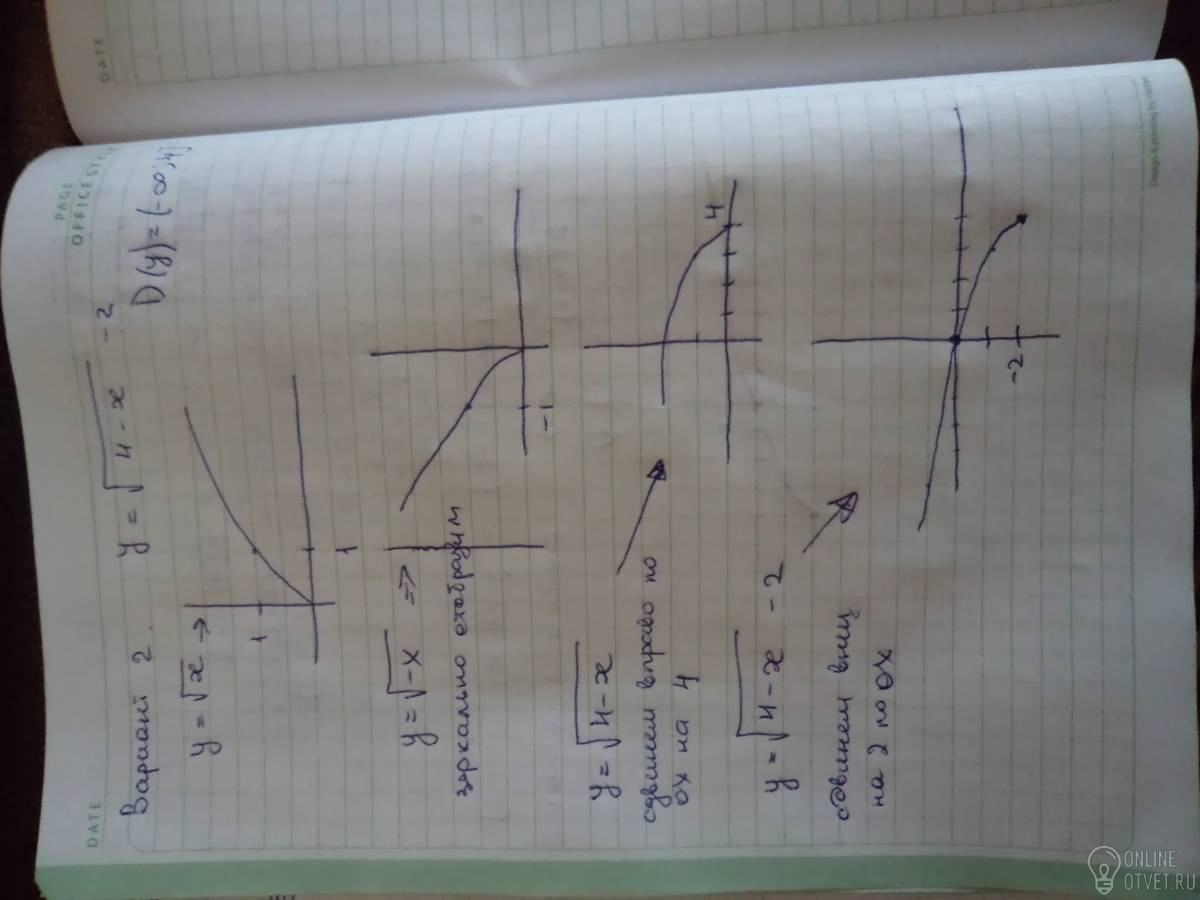 DATE
PAGE
OFFICE STYLE
Вариант 2. y = √4-x -2
D(y)=(-∞;4]
y = √x →
1
1
y = √-x ⇒
зеркально отобразим
-1
y = √4-x
сдвинем вправо по
ox на 4
4
y = √4-x -2
сдвинем вниз
на 2 по ox
-2
DATE
ONLINE
OTVET.RU